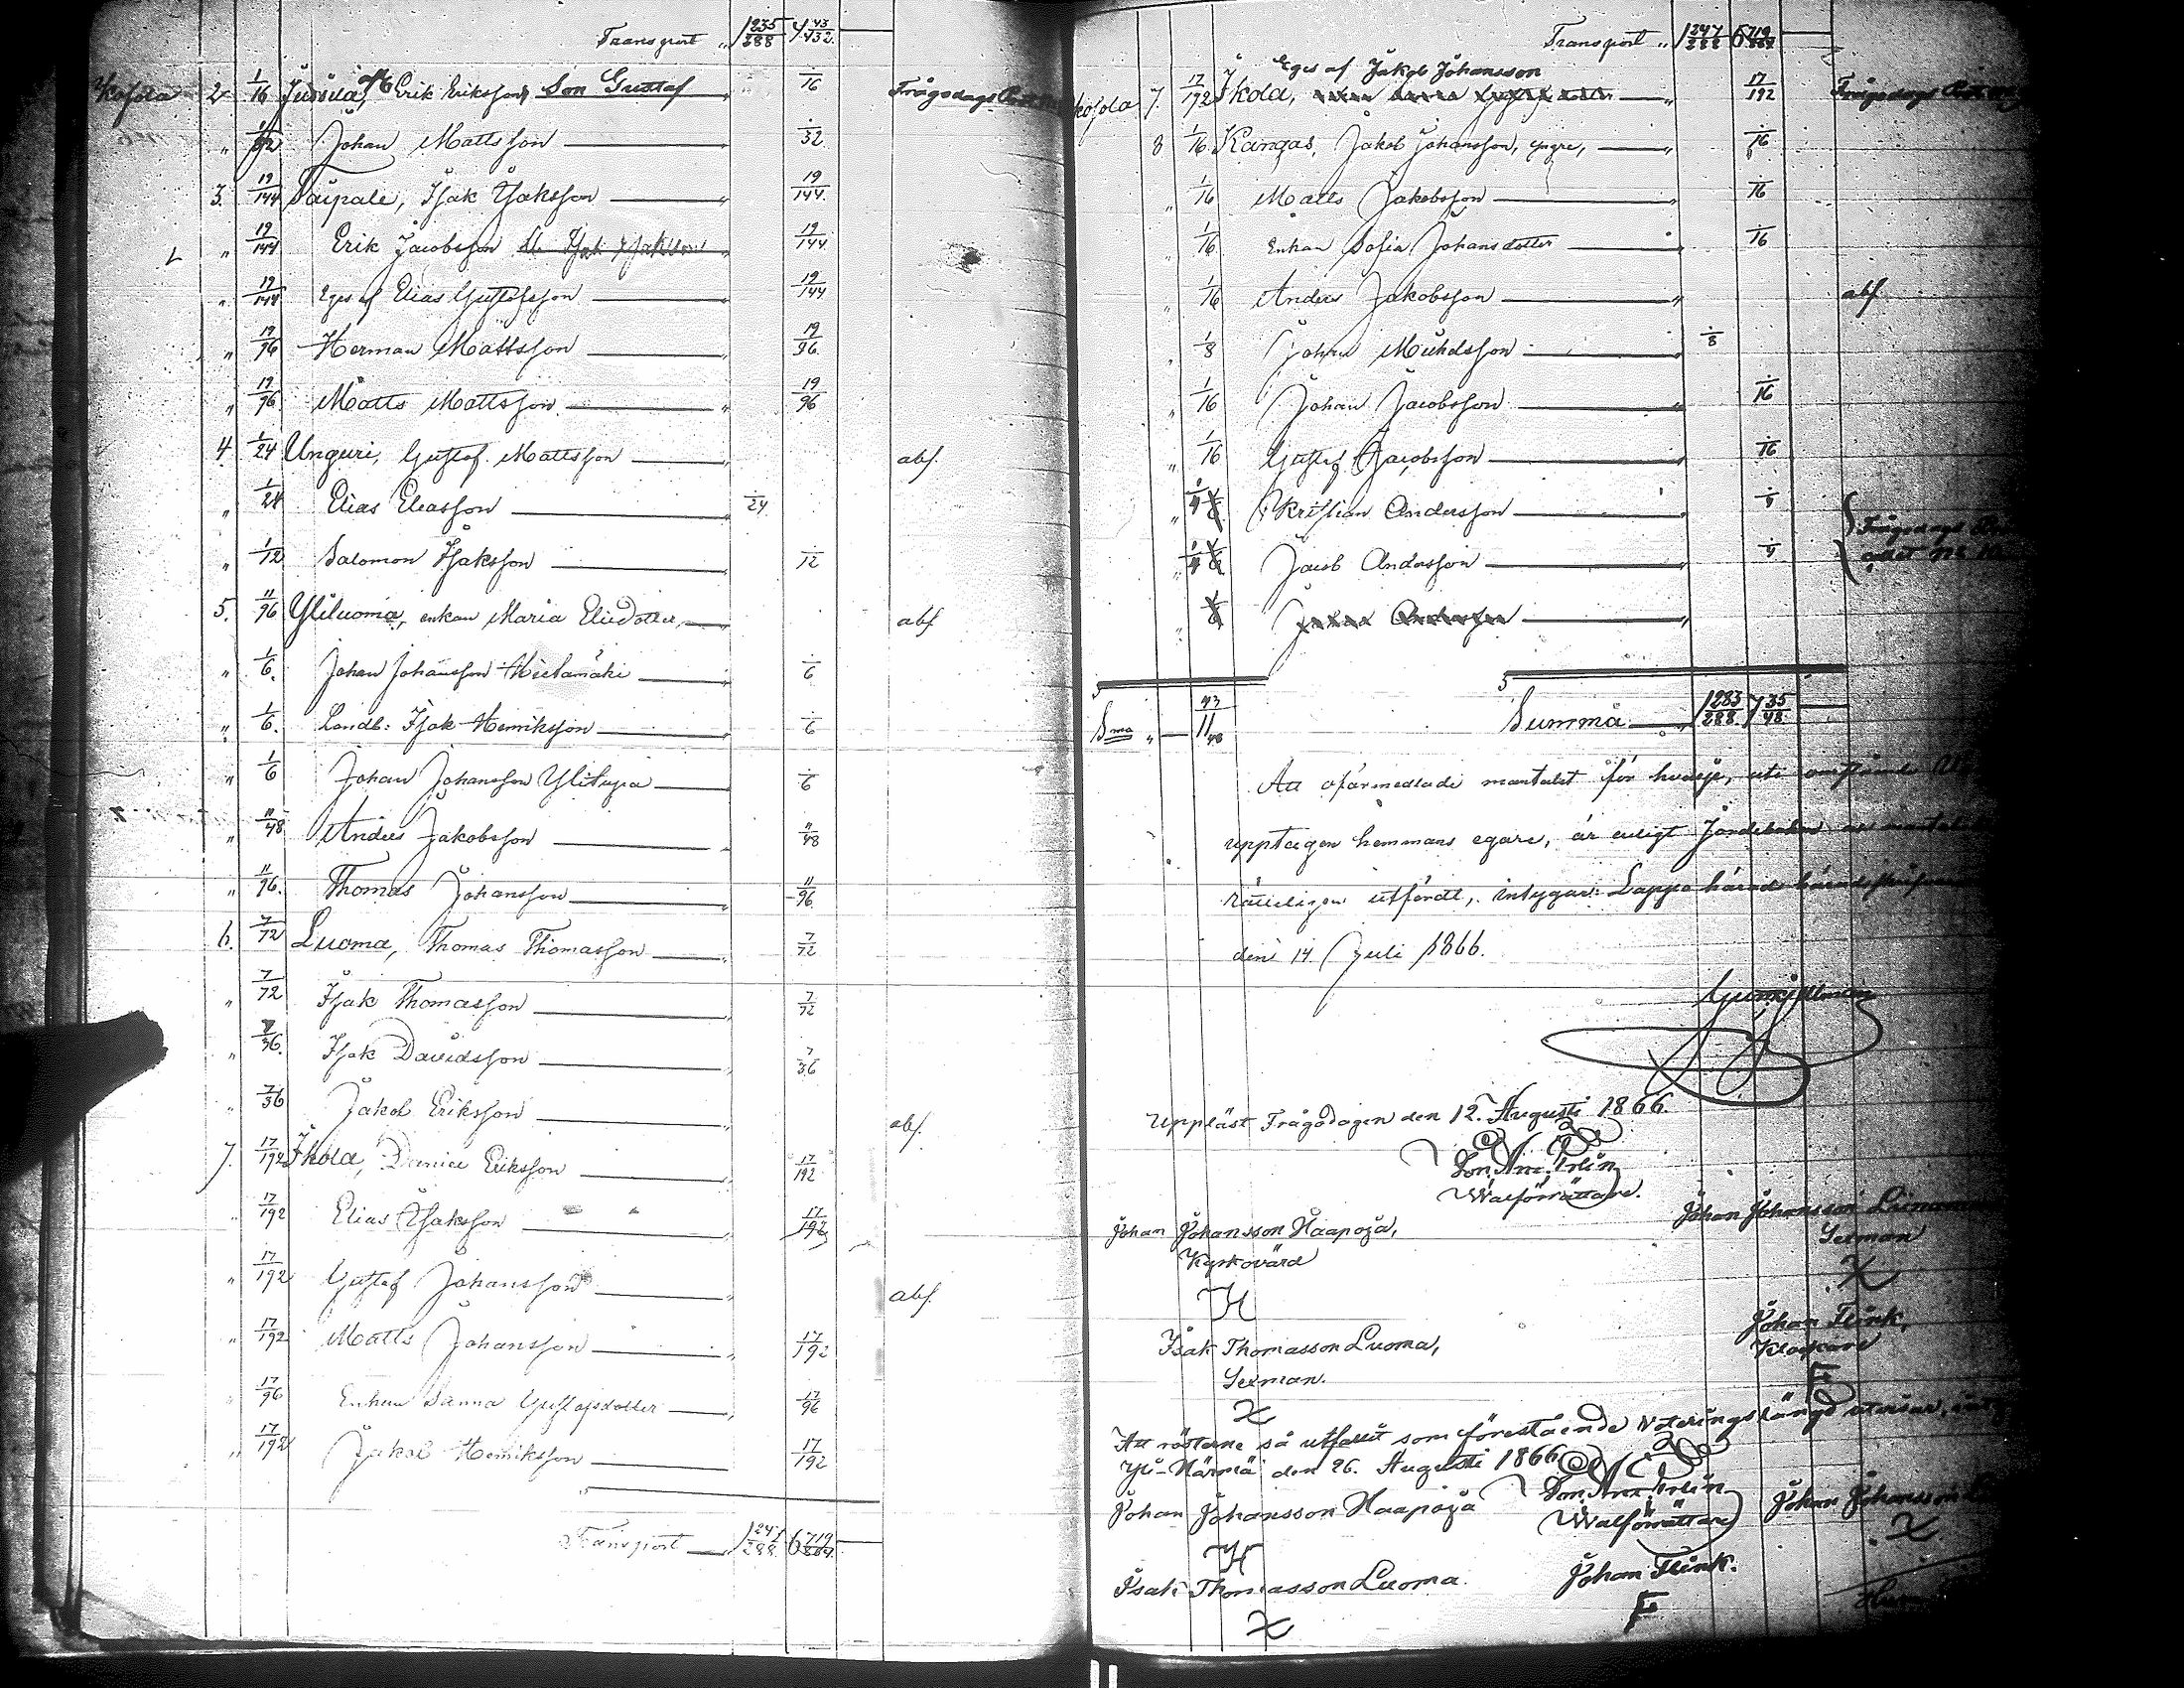 Transport „ 1 235/288 4 43/432
Kosola 2 1/16 Jussila, Erik Erikssons Son Gustaf 1/16 Frågodags
„ 1/32 Johan Mattsson „ 1/32
3. 19/144 Taipale, Isak Isaksson „ 19/144
„ 19/144 Erik Jacobsson „ 19/144
„ 19/144 Eges af Elias Gustafsson „ 19/144
„ 19/96 Herman Mattsson „ 19/96
„ 19/96 Matts Mattsson „ 19/96
4. 1/24 Unguri, Gustaf Mattsson „ abs.
„ 1/24 Elias Eliasson „ 1/24
„ 1/12 Salomon Isaksson „ 1/12
5. 11/96 Yliluoma, enkan Maria Eliedotter „ abs
„ 1/6 Johan Johansson Hietamäki „ 1/6
„ 1/6 Landb: Isak Henriksson „ 1/6
„ 1/6 Johan Johansson Ylitupa „ 1/6
„ 11/48 Anders Jakobsson „ 11/48
„ 11/96 Thomas Johansson „ 11/96
6. 7/72 Luoma, Thomas Thomasson „ 7/72
„ 7/72 Isak Thomasson „ 7/72
„ 7/36 Isak Davidsson „ 7/36
„ 7/36 Jakob Eriksson „ abs.
7. 17/192 Ikola, Daniel Eriksson „ 17/192
„ 17/192 Elias Isaksson „ 17/192
„ 17/192 Gustaf Johansson „ abs.
„ 17/192 Matts Johansson „ 17/192
„ 17/96 Enkan Sanna Gustafsdotter „ 17/96
„ 17/192 Jakob Henriksson 17/192
Transport 1 247/288 6 719/864
Transport „ 1 247/288 6 719/864
Eges af Jakob Johansson
Kosola 7. 17/192 Ikola, „ 17/192 Frågodags
8 1/16 Kangas, Jakob Johansson, yngre, „ 1/16
„ 1/16 Matts Jakobsson „ 1/16
„ 1/16 Enkan Sofia Johansdotter „ 1/16
„ 1/16 Anders Jakobsson „ abs
„ 1/8 Johan Michelsson „ 1/8
„ 1/16 Johan Jacobsson „ 1/16
„ 1/16 Gustaf Jacobsson „ 1/16
„ 1/4 Kristian Andersson „ 1/4 Frågodags
„ 1/4 Jacob Andersson „ 1/4
„ Andersson „
Sma „ 11 43/48 Summa 1 283/288 7 35/48
Att oförmedlade mantalet för hvarje, uti omstående
upptagen hemmans egare, är enligt Jordeboken
rätteligen utfördt, intygar: Lappo härads
den 14 Juli 1866.
Uppläst Frågodagen den 12. Augusti 1866.
Walförrättare.
Johan Johansson Haapoja,
Kyrkovärd
H
Johan Johansson
Sexman
X
Isak Thomasson Luoma,
Sexman.
X
Johan Flink,
Klockare
F
Att rösterne så utfallit som förestående Voteringslängd utvisar,
Yli-Härmä den 26. Augusti 1866
Walförrättare
Johan Johansson Haapoja
H
Johan Johansson
X
Isak Thomasson Luoma.
X
Johan Flink.
F